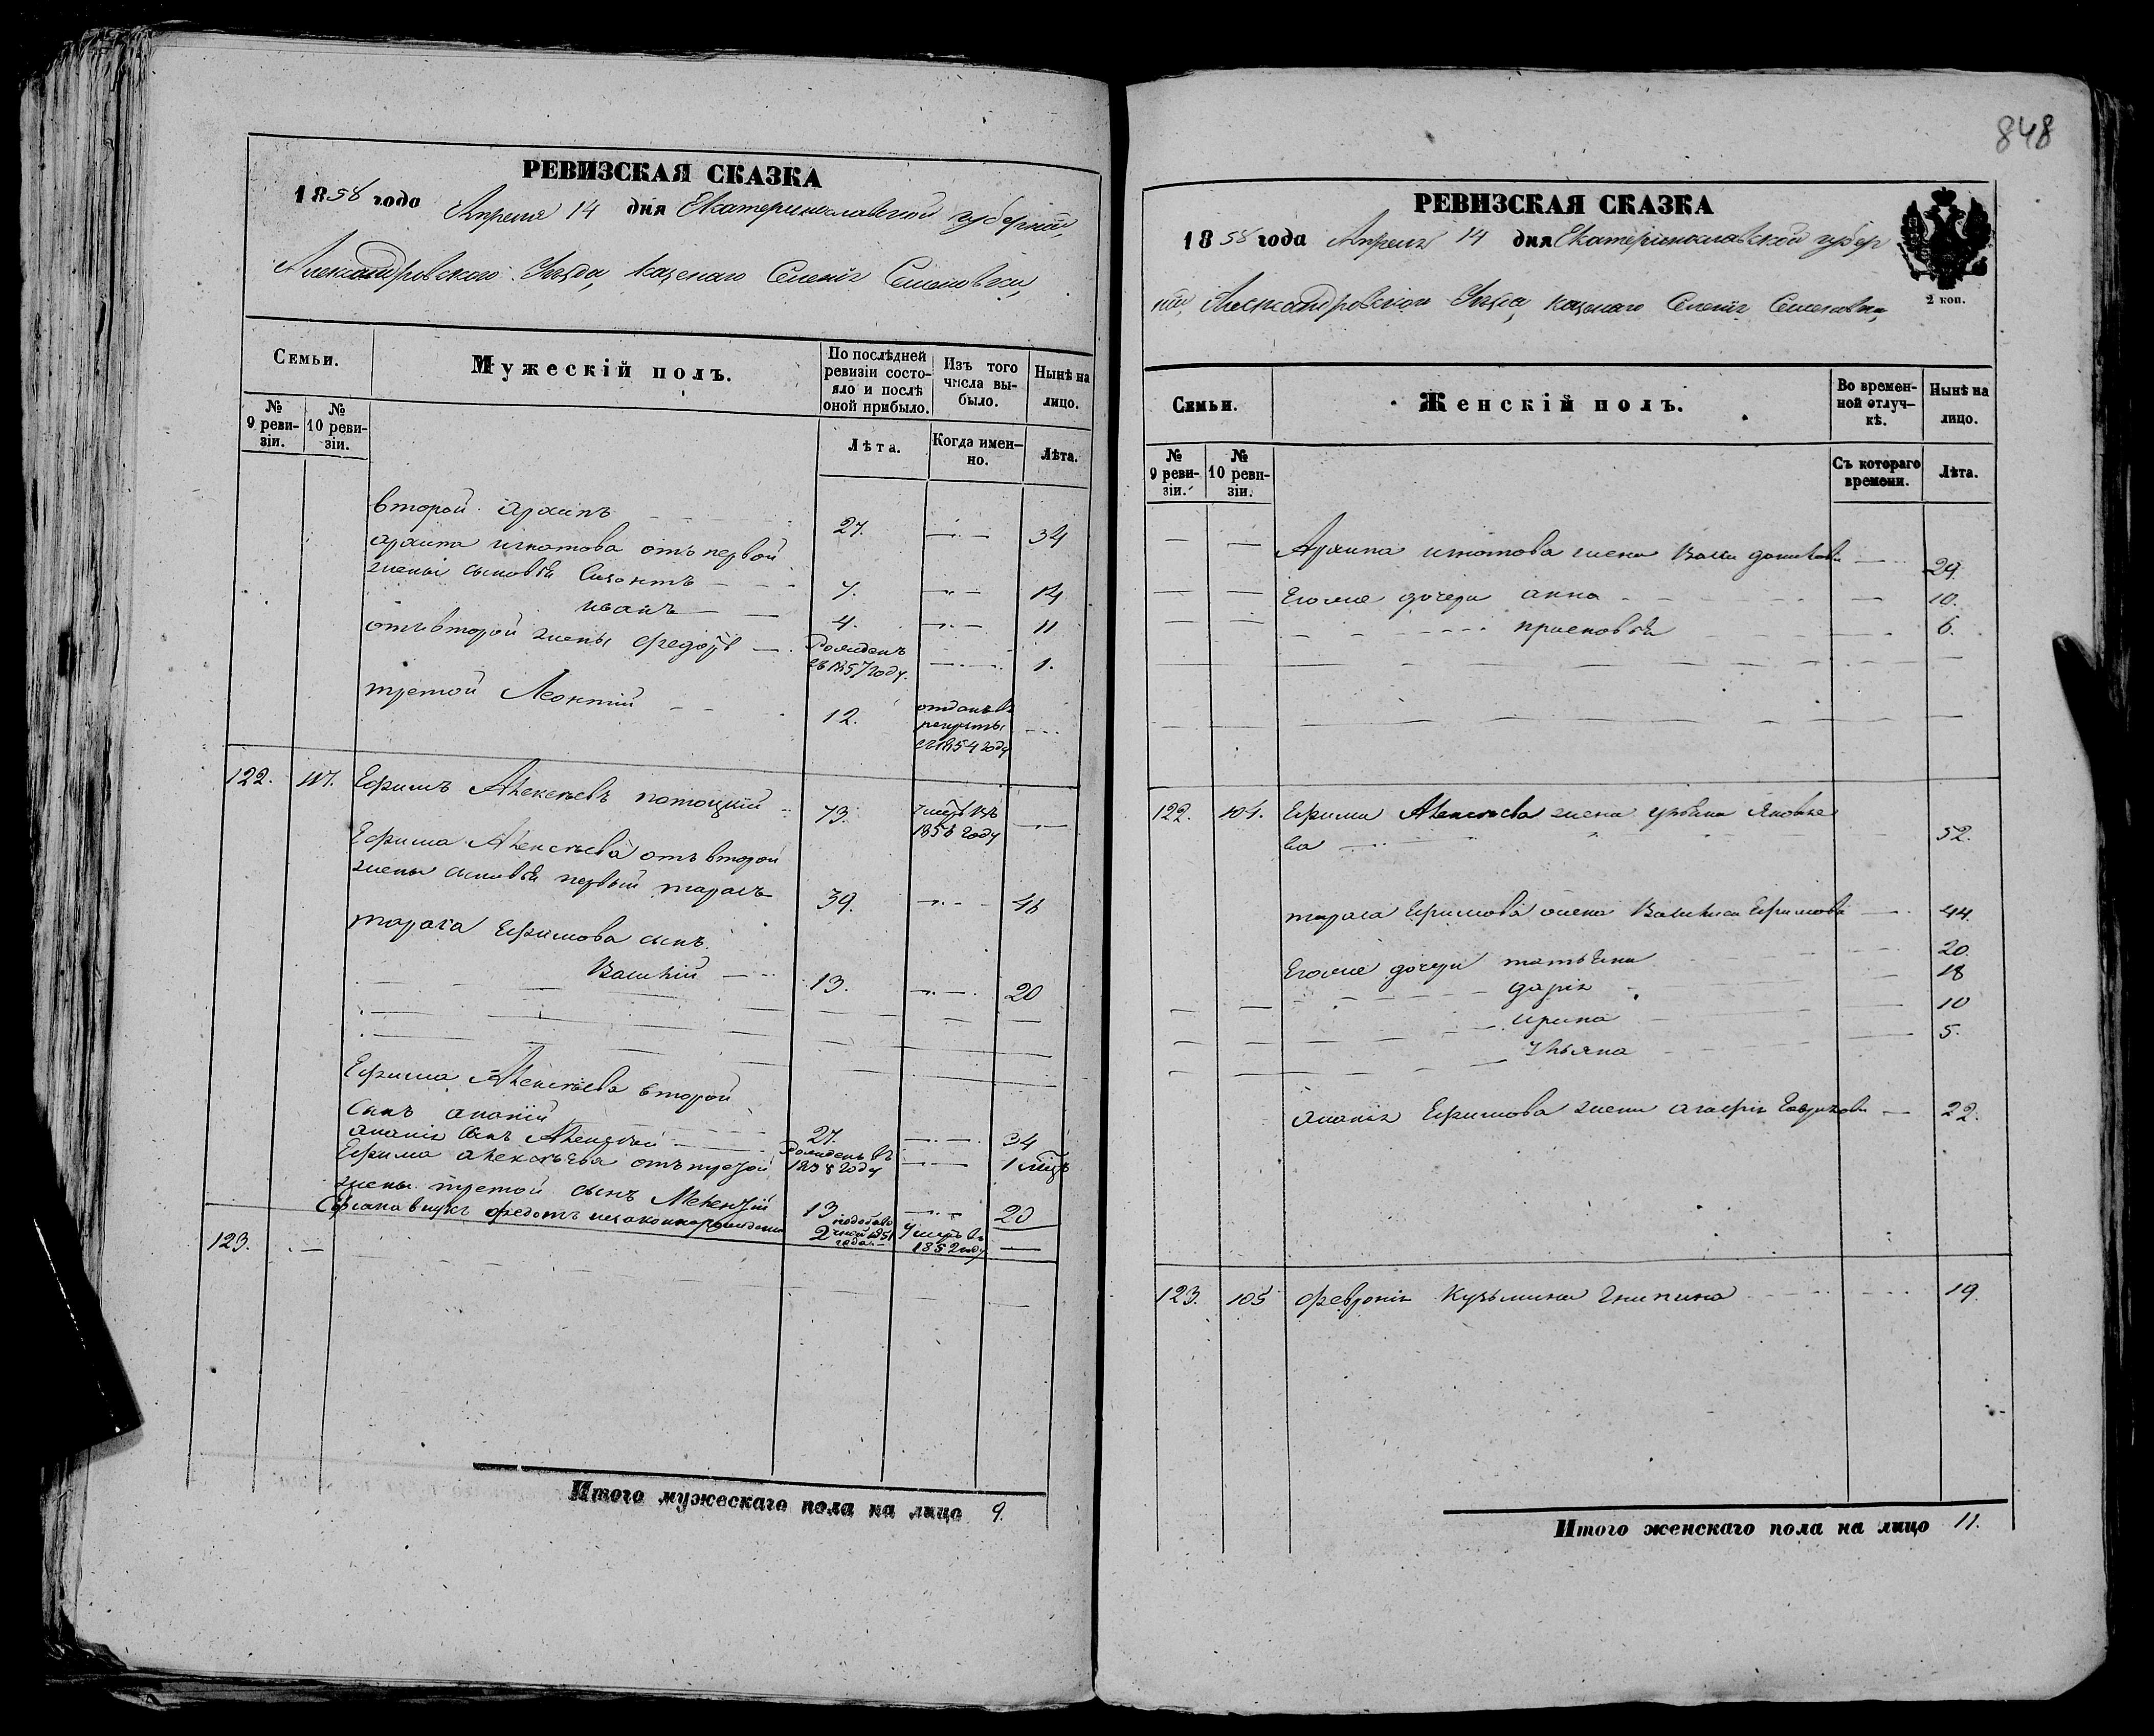 848
РЕВИЗСКАЯ СКАЗКА
1858 года Апреля 14 дня Екатеринославской губерніи,
Александровского Уѣзда, казенаго Селенія Семеновки,
Семьи.
Мужескій полъ.
По послѣдней ревизіи состояло и послѣ оной прибыло.
Изъ того числа выбыло.
Нынѣ на лицо.
№ 9 ревизіи.
№ 10 ревизіи.
Лѣта.
Когда именно.
Лѣта.
второй архипъ 27. 34
архипа игнатова отъ первой
жены сыновья 7. 14
иванъ 4. 11
отъ второй жены федоръ Рожденъ въ 1857 году. 1.
третой Леонтій 12. отданъ въ рекруты въ 1854 году
122. 117. Ефимъ Алексѣевъ потоцкій 73. умеръ въ 1858 году
Ефима Алексѣева отъ второй
жены сыновья первый тарасъ 39. 46
тараса Ефимова сынъ
Василій 13. 20
Ефима Алексѣева второй
сынъ ананій 27. 34
ананія сынъ Алексѣй Рожденъ въ 1858 году 1 мѣць
Ефима алексѣева отъ третой
жены третой сынъ 13 20
внукъ федотъ незаконнорожденный 2 умеръ въ 1852 году
123.
Итого мужескаго пола на лицо 9.
РЕВИЗСКАЯ СКАЗКА
1858 года Апреля 14 дня Екатеринославской губер
ніи, Александровского Уѣзда, казенаго Селенія Семеновки,
2 коп.
Семьи.
Женскій полъ.
Во временной отлучкѣ.
Нынѣ на лицо.
№ 9 ревизіи.
№ 10 ревизіи.
Съ котораго времени.
Лѣта.
Архипа игнатова жена 29.
Егоже дочери анна 10.
6.
122. 104. Ефима Алексѣева жена Яковле
ва 52.
тараса Ефимова жена Василиса Ефимова 44.
Егоже дочери татьяна 20.
дарія 18
ирина 10
Ульяна 5.
ананія Ефимова жена агафія Гаврилова 22.
123. 105 февронія Кузьмина Гнипина 19.
Итого женскаго пола на лицо 11.